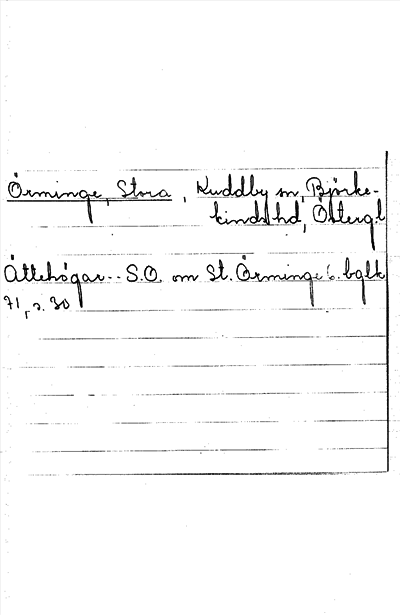 Örminge, Stora, Kuddby sn, Björke-
kinds hd, Östergl
Ättehögar-- S.O. om St. Örminge G. bglk
71, s. 30